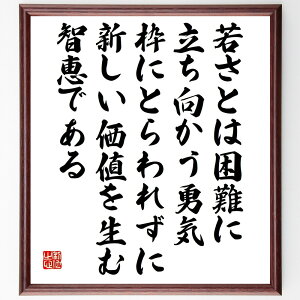 若さとは困難に
立ち向かう勇気
枠にとらわれずに
新しい価値を生む
智恵である